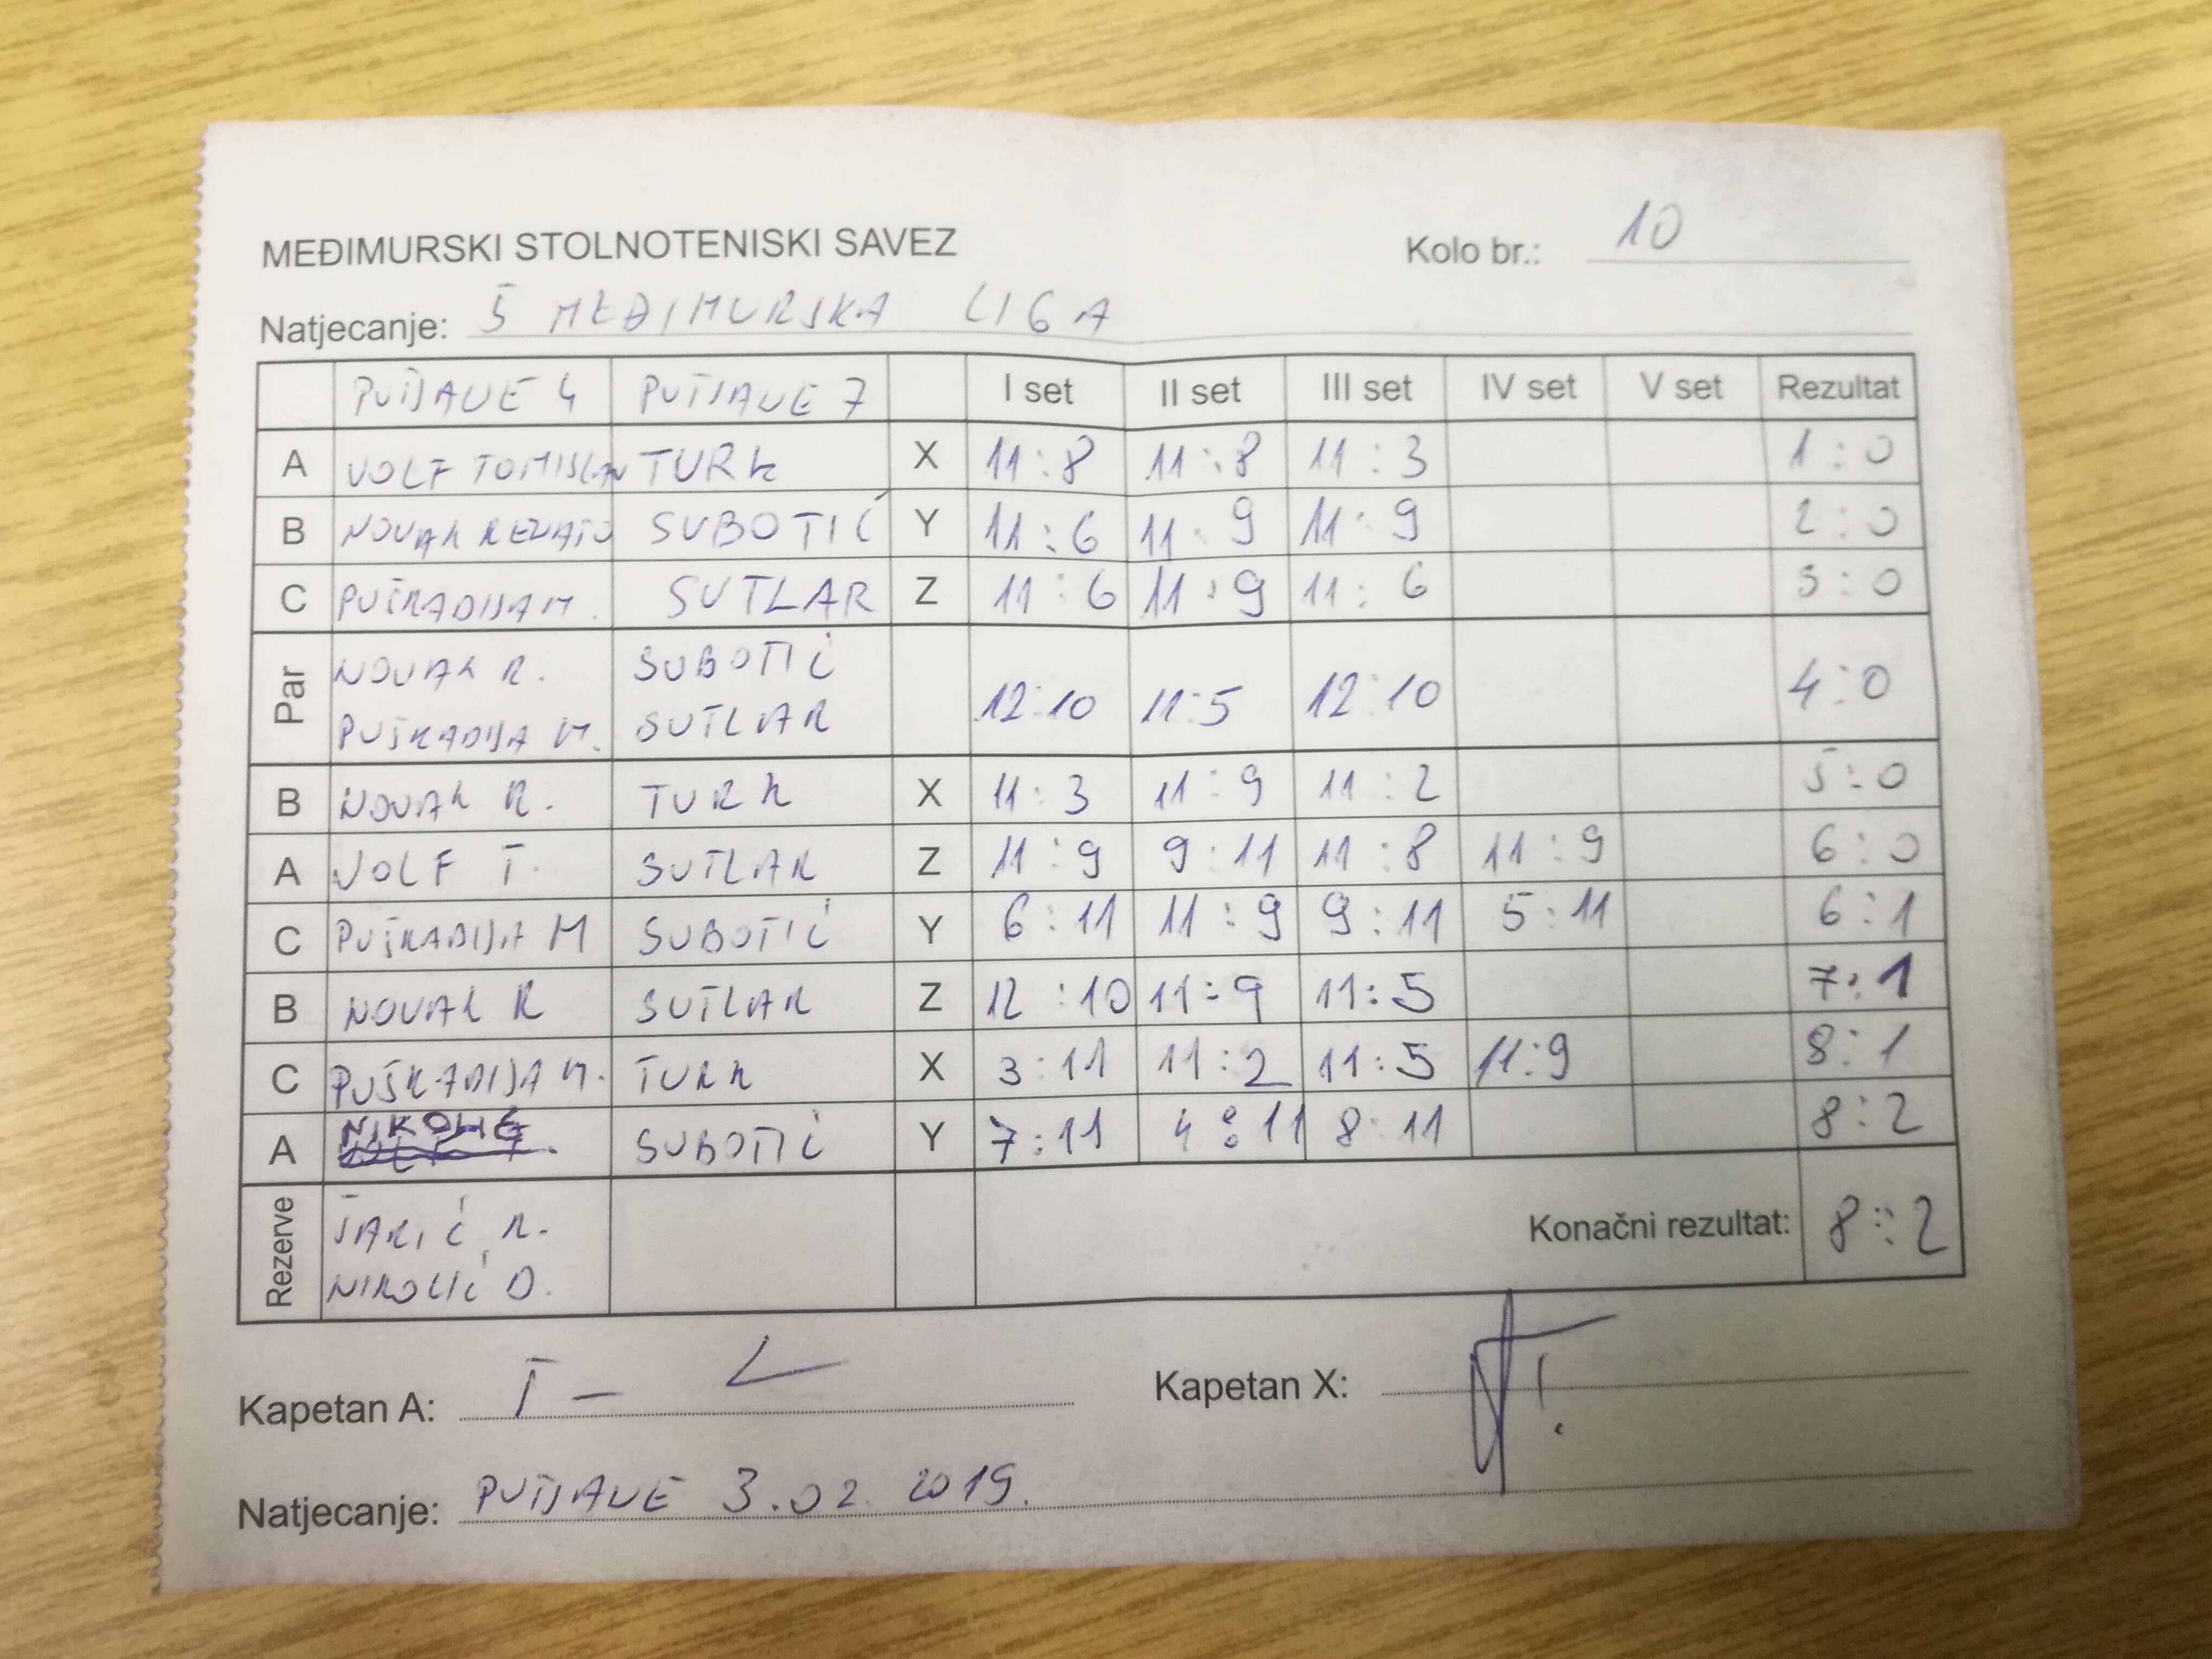 MEĐIMURSKI STOLNOTENISKI SAVEZ Kolo br.: 10
Natjecanje: 5 MEĐIMURSKA LIGA
PUŠĆAVE 4 PUŠĆAVE 7 I set II set III set IV set V set Rezultat
A VOLF TOMISLAV TURK X 11:8 11:8 11:3 1:0
B NOVAK RENATO SUBOTIĆ Y 11:6 11:9 11:9 2:0
C PUŠKADIJA M. SUTLAR Z 11:6 11:9 11:6 3:0
Par NOVAK R. SUBOTIĆ
PUŠKADIJA M. SUTLAR 12:10 11:5 12:10 4:0
B NOVAK R. TURK X 11:3 11:9 11:2 5:0
A VOLF T. SUTLAR Z 11:9 9:11 11:8 11:9 6:0
C PUŠKADIJA M SUBOTIĆ Y 6:11 11:9 9:11 5:11 6:1
B NOVAK R SUTLAR Z 12:10 11:9 11:5 7:1
C PUŠKADIJA M. TURK X 3:11 11:2 11:5 11:9 8:1
A NIKOLIĆ SUBOTIĆ Y 7:11 4:11 8:11 8:2
Rezerve ŠARIĆ R.
NIKOLIĆ D.
Konačni rezultat: 8:2
Kapetan A: Kapetan X:
Natjecanje: PUŠĆAVE 3.02.2019.